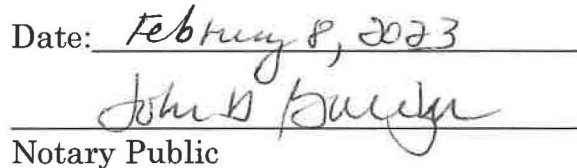 Date: February 8, 2023
John D
Notary Public